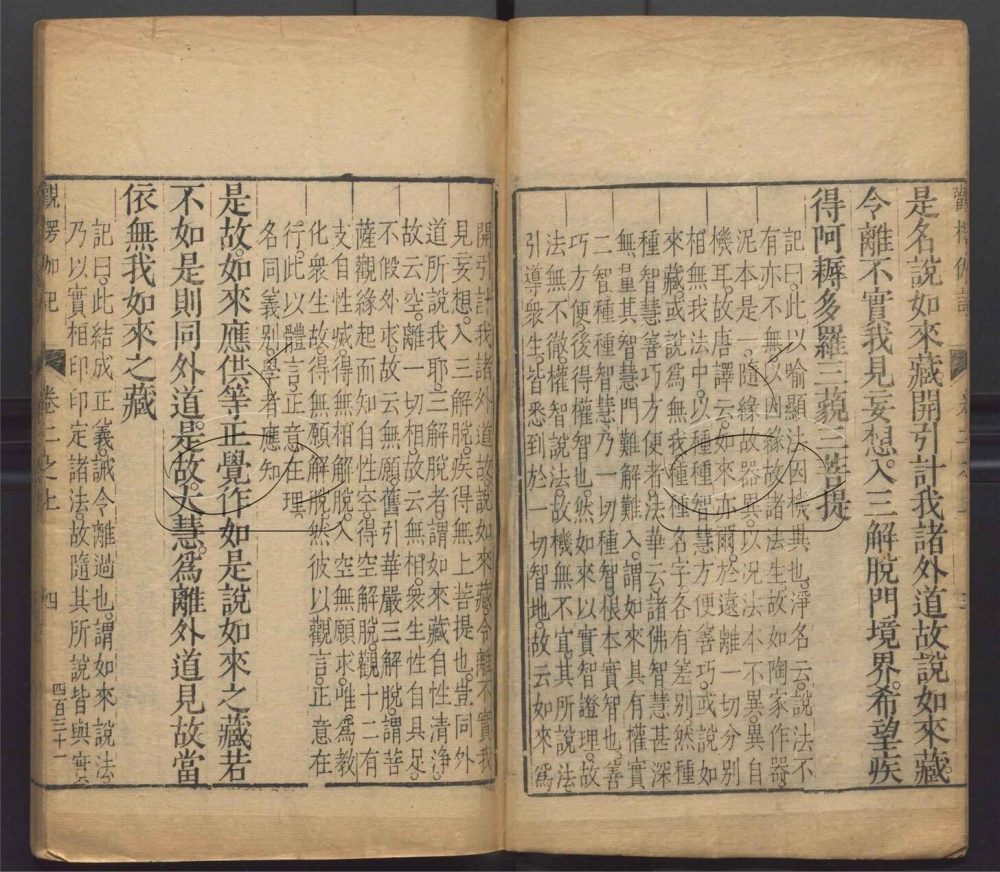 是名說如來藏開引計我諸外道故說如來藏
令離不實我見妄想入三解脫門境界希望疾
得阿耨多羅三藐三菩提
記曰此以喻顯法因機異也淨名云說法不
有亦不無以因緣故諸法生故如陶家作器
泥本是一隨緣故器異以况法本不異異自
機耳故唐譯云如來亦爾於遠離一切分別
相無我法中以種種智慧方便善巧或說如
來藏或說爲無我種種名字各有差別然種
種智慧善巧方便者法華云諸佛智慧甚深
無量其智慧門難解難入謂如來具有權實
二智種種智慧乃一切種智根本實智也善
巧方便後得權智也然如來以實智證理故
法無不徹權智說法故機無不宜其所說法
引導衆生皆悉到於一切智地故云如來爲
開引計我諸外道故說如來藏令離不實我
見妄想入三解脫疾得無上菩提也豈同外
道所說我耶三解脫者謂如來藏自性清淨
故云空離一切相故云無相衆生性自具足
不假外求故云無願舊引華嚴三解脫謂菩
薩觀緣起而知自性空得空解脫觀十二有
支自性滅得無相解脫入空無願求唯爲教
化衆生故得無願解脫然彼以觀言正意在
行此以體言正意在理
名同義別學者應知
是故如來應供等正覺作如是說如來之藏若
不如是則同外道是故大慧爲離外道見故當
依無我如來之藏
記曰此結成正義誡令離過也謂如來說法
乃以實相印印定諸法故隨其所說皆與實
觀楞伽記 卷二之上 四
四百三十一